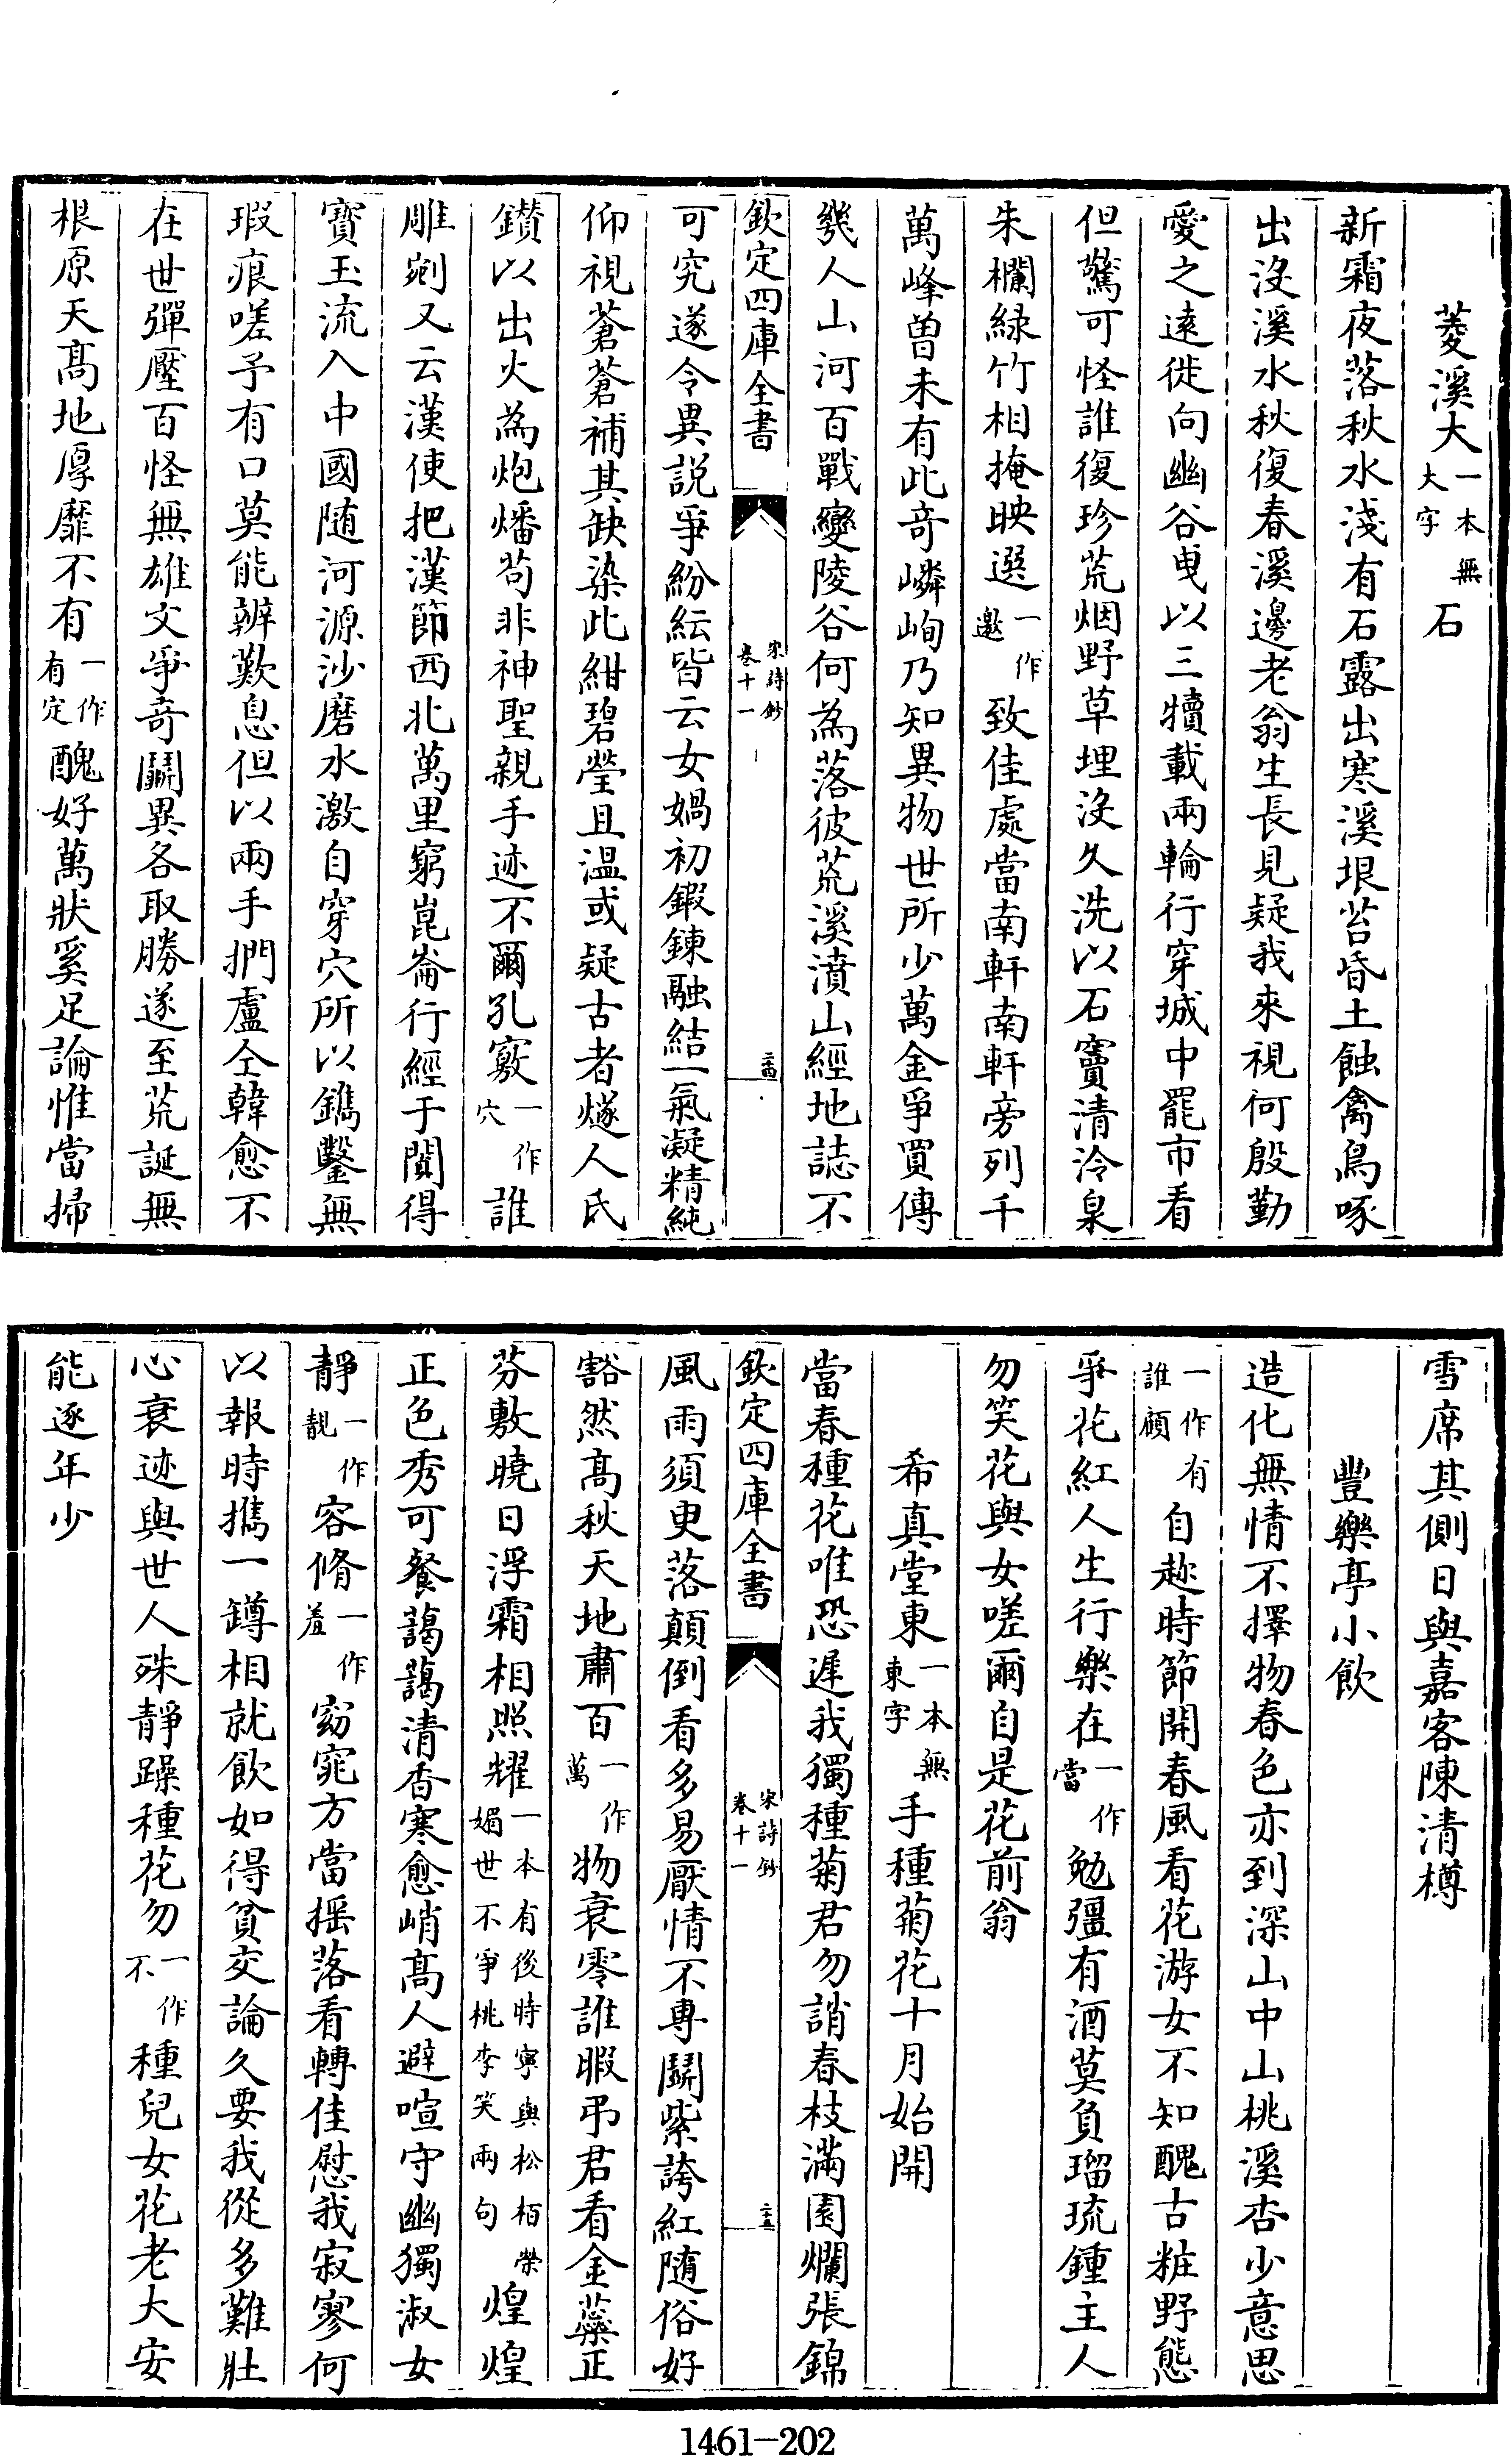 菱溪大一本無大字石
新霜夜落秋水淺有石露出寒溪垠苔昏土蝕禽鳥啄
出沒溪水秋復春溪邊老翁生長見疑我來視何殷勤
愛之遠徙向幽谷曳以三犢載兩輪行穿城中罷市看
但驚可怪誰復珍荒烟野草埋沒久洗以石竇清泠泉
朱欄緑竹相掩映選一作邀致佳處當南軒南軒旁列千
萬峰曽未有此奇嶙峋乃知異物世所少萬金爭買傳
幾人山河百戰變陵谷何為落彼荒溪濆山經地誌不
欽定四庫全書
宋詩鈔
卷十一
二十四
可究遂令異説爭紛紜皆云女媧初鍜鍊融結一氣凝精純
仰視蒼蒼補其缺染此紺碧瑩且温或疑古者燧人氏
鑚以出火為炮燔苟非神聖親手迹不爾孔竅一作穴誰
雕剜又云漢使把漢節西北萬里窮崑崙行經于闐得
寳玉流入中國随河源沙磨水激自穿穴所以鐫鑿無
瑕痕嗟予有口莫能辨歎息但以兩手捫盧仝韓愈不
在世彈壓百怪無雄文爭奇鬬異各取勝遂至荒誕無
根原天髙地厚靡不有一作有定醜好萬狀奚足論惟當掃
雪席其側日與嘉客陳清樽
豐樂亭小飲
造化無情不擇物春色亦到深山中山桃溪杏少意思
一作有誰顧自趂時節開春風看花游女不知醜古粧野態
爭花紅人生行樂在一作當勉彊有酒莫負瑠琉鍾主人
勿笑花與女嗟爾自是花前翁
希真堂東一本無東字手種菊花十月始開
當春種花唯恐遲我獨種菊君勿誚春枝滿園爛張錦
欽定四庫全書
宋詩鈔
卷十一
二十五
風雨須臾落顛倒看多易厭情不專鬬紫誇紅随俗好
豁然髙秋天地肅百一作萬物衰零誰暇弔君看金蘂正
芬敷曉日浮霜相照耀一本有後時寜與松栢榮媚世不爭桃李笑兩句煌煌
正色秀可餐藹藹清香寒愈峭髙人避喧守幽獨淑女
靜一作靚容脩一作羞窈窕方當摇落看轉佳慰我寂寥何
以報時擕一罇相就飲如得貧交論久要我從多難壯
心衰迹與世人殊靜躁種花勿一作不種兒女花老大安
能逐年少
1461-202